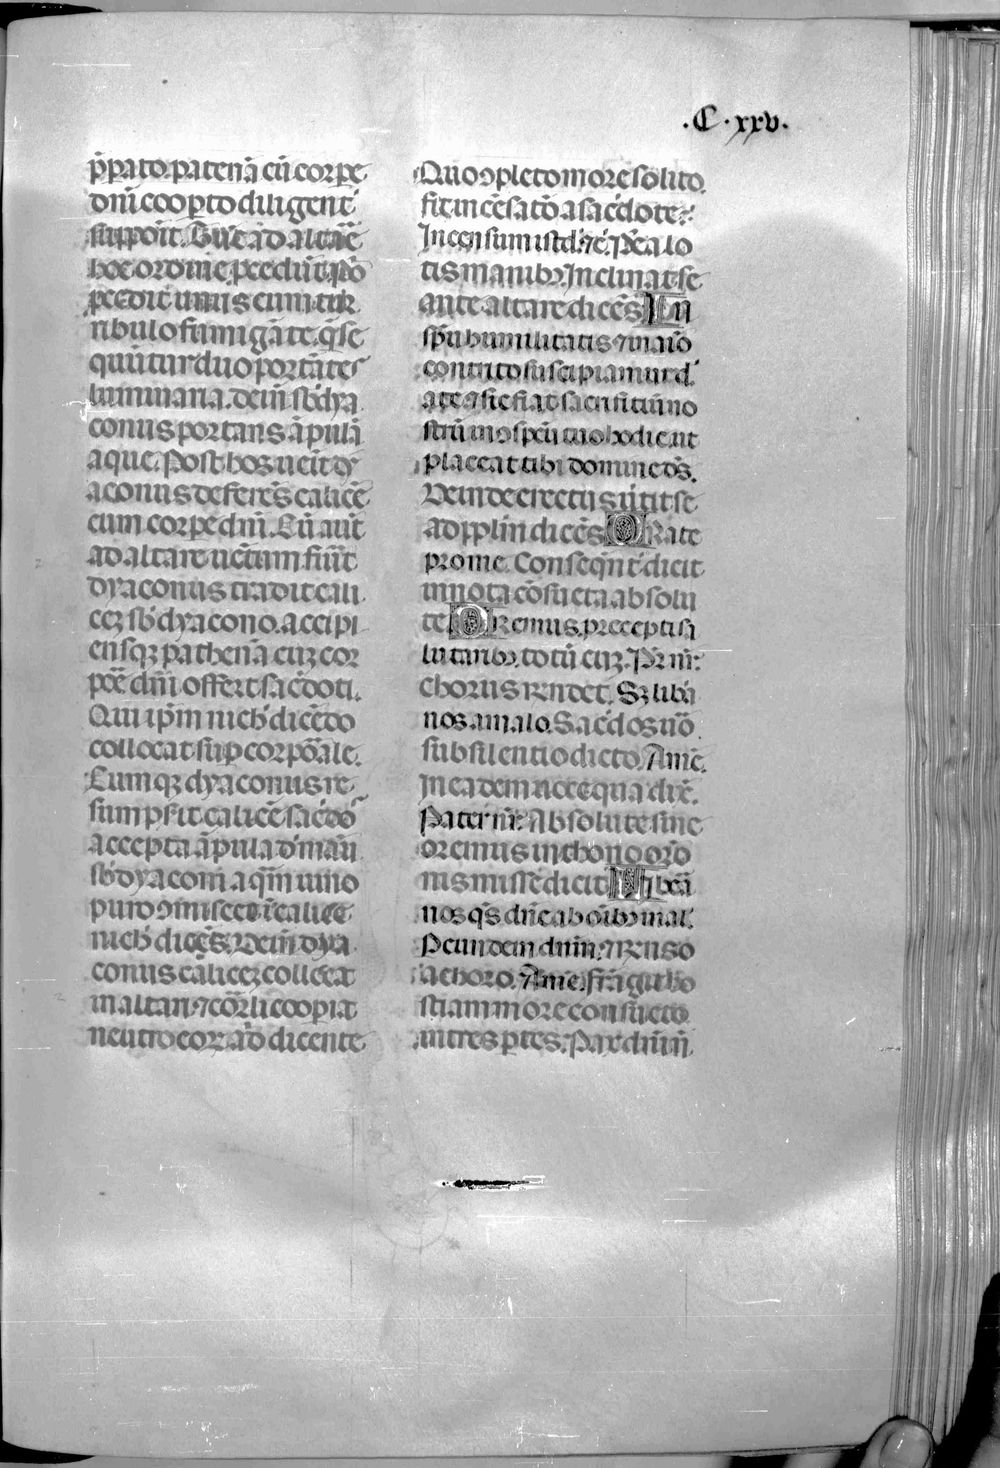 .C.xxv.
p̄parato. patenā cū corꝑe
dn̄i cooꝑto diligent̄
suppoīt. ad altaē
hoc ordine p̄cedūt.
p̄cedit unus cum turi
ribulo fumigāte. q̄ se
quūtur duo portātes
luminaria. dein̄ sb̄dya
conus portans āpulā
aque. Post hos ueīt dy
aconus deferēs calicē
cum corꝑe dn̄i. Cū aut̄
ad altare uētum fuīt
dyaconus tradit cali
cēꝫ sb̄dyacono. accipi
ensqꝫ pathenā cuꝫ cor
poē dn̄i offert sac̄doti.
Qui ip̄m nich̄ dicēdo
collocat suꝑ corpōale.
Cumqꝫ dyaconus re
sumpsit calicē sac̄dō
accepta āpula d̓ manu
sb̄dyaconi aq̄m uino
puro ꝯmiscet ī calice
nich̄ dicēs. Dein̄ dya
conus caliceꝫ collocat
in altari ⁊ cooꝑit
neutro eoꝝ ad dicente
Quo ꝯpleto more solito
fit incēsatō a sac̄dote.
Incensum istd̓ ⁊c̄. P̄ea lo
tis manibꝫ. Inclinat se
ante altare dicēs In
sp̄u humilitatis ⁊ in aīo
contrito suscipiamur d̓
a te ⁊ sic fiat sacrificiū no
strū in ꝯspcū tuo hodie ut
placeat tibi domine d̄s.
Deinde erectus ūtit se
ad pp̄lm dicēs Orate
pro me. Conseqn̄t̓ dicit
in nota cōsueta absolu
te Oremus. preceptis sa
lutaribꝫ. totū cuꝫ. Pr̄ nr̄:
chorus rn̄det. Sꝫ libā
nos a malo. Sac̄dos ūo
sub silentio dicto. Amē.
In eadem uoce qua dix̄.
Pater nr̄. Absolute sine
oremus in thono orō
nis misse dicit Libeā
nos q̄s dn̄e ab oībꝫ mal̓.
P eundem dnm̄. ⁊ rn̄so
a choro. Amē. frāgit ho
stiam more consueto
in tres ꝑtes. Pax dn̄i